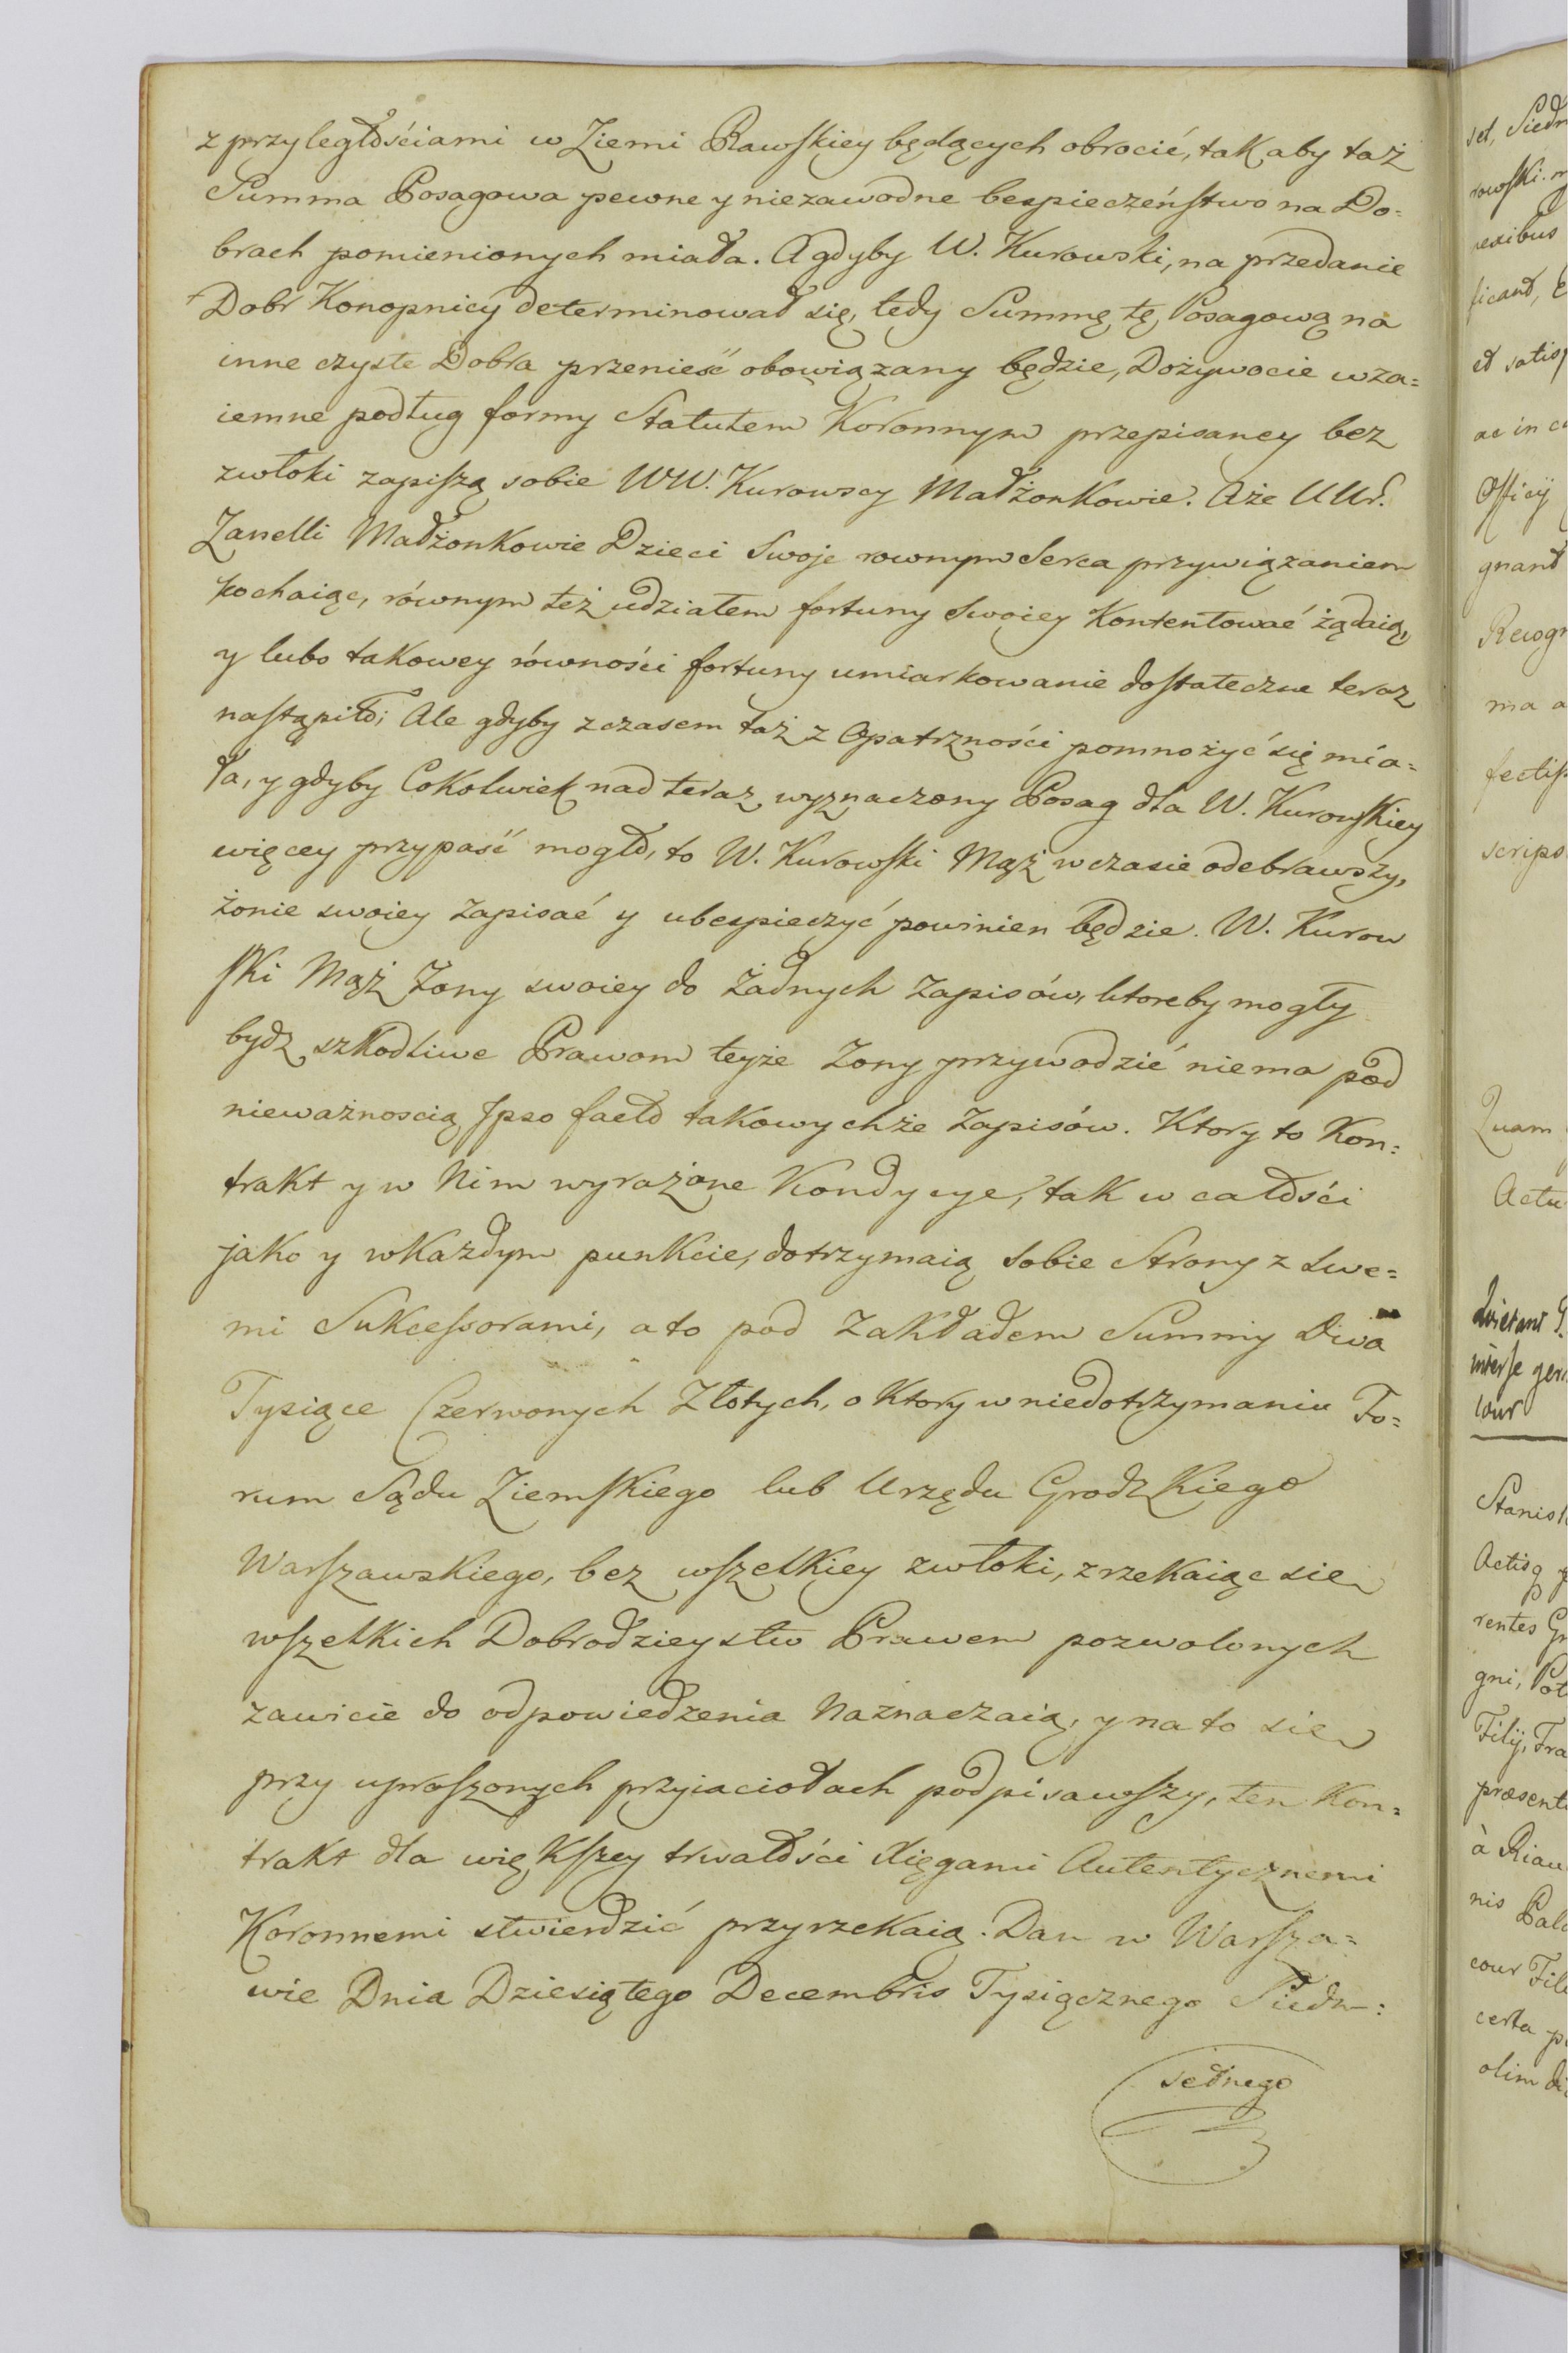 z przyległościami w Ziemi Rawskiey będących obrocić, tak aby taż
Summa Posagowa pewne y niezawodne bespieczeństwo na Do=
brach pomienionych miała. A gdyby W. Kurowski, na przedanie
Dobr Konopnicy determinował się, tedy Summę tę Posagową na
inne czyste Dobra przenieść obowiązany będzie, Dożywocie wza=
iemne podług formy Statutem Koronnym przepisaney bez
zwłoki zapiszą sobie WW. Kurowscy Małżonkowie. Aże UUr.
Zanelli Małżonkowie Dzieci Swoje rownym Serca przywiązaniem
kochaiąc, równym też udziałem fortuny Swoiey Kontentować żądaią,
y lubo takowey równości fortuny umiarkowanie dostateczne teraz
nastąpiło; Ale gdyby z czasem taż z Opatrzności pomnożyć się mia=
ła, y gdyby Cokolwiek nad teraz wyznaczony Posag dla W. Kurowskiey
więcey przypaść mogło, to W. Kurowski Mąż w czasie odebrawszy,
żonie swoiey zapisać y ubespieczyć powinien będzie. W. Kurow
ski Mąż Żony swoiey do Żadnych Zapisów, ktoreby mogły
bydz szkodliwe Prawom teyże Zony przywodzić niema pod
nieważnoscią Ipso facto takowychże Zapisów. Ktory to Kon=
trakt y w Nim wyrażone Kondycye, tak w całości
jako y w Każdym punkcie, dotrzymaią Sobie Strony z Swe=
mi Sukcessorami, a to pod Zakładem Summy Dwa
Tysiące Czerwonych Złotych, o Ktory w niedotrzymaniu Fo=
rum Sądu Ziemskiego lub Urzędu Grodzkiego
Warszawskiego, bez wszelkiey zwłoki, zrzekaiąc sie
wszelkich Dobrodzieystw Prawem pozwolonych
zawicie do odpowiedzenia Naznaczaią, y na to sie
przy uproszonych przyiaciołach podpisawszy, ten Kon=
trakt dla większey trwałości Xięgami Autentycznemi
Koronnemi stwierdzić przyrzekaią. Dan w Warsza=
wie Dnia Dziesiątego Decembris Tysiącznego Siedm=
sednego
set, Siedm
rowski. m
nexibus
ficand,
et satis
ac in c
Officij
gnand
Recogn
ma a
fectis
scrips
Quam
Actu
inter se gen
cour
Stanisl
Actisq p
rentes G
gni, Pot
Filij, Fra
præsent
à Riau
nis Pala
cour Fil
certa p
olim di